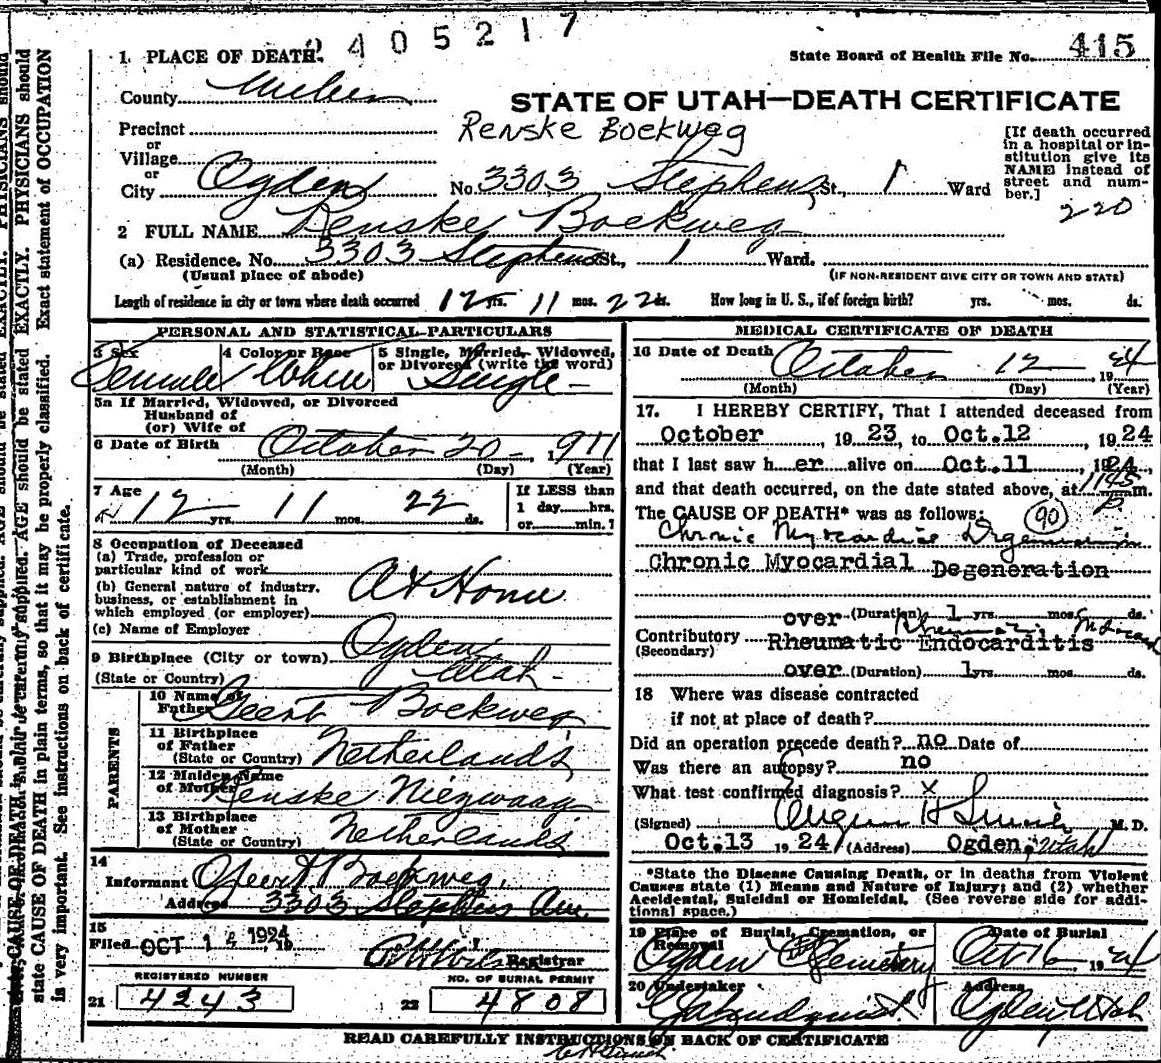 2405217
1. PLACE OF DEATH.
State Board of Health File No. 415
County Weber
STATE OF UTAH—DEATH CERTIFICATE
Precinct
Renske Boekweg
or
Village
or
City Ogden No. 3303 Stephens St., 1 Ward
[If death occurred in a hospital or in-
stitution give its
NAME instead of
street and num-
ber.]
220
2 FULL NAME Renske Boekweg
(a) Residence. No. 3303 Stephens St., 1 Ward.
(Usual place of abode) (IF NON-RESIDENT GIVE CITY OR TOWN AND STATE)
Length of residence in city or town where death occurred 12 yrs. 11 mos. 22 ds. How long in U. S., if of foreign birth? yrs. mos. ds.
PERSONAL AND STATISTICAL PARTICULARS
3 Sex Female
4 Color or Race White
5 Single, Married, Widowed,
or Divorced (write the word)
Single
5a If Married, Widowed, or Divorced
Husband of
(or) Wife of
6 Date of Birth October 20 1911
(Month) (Day) (Year)
7 Age 12 yrs. 11 mos. 22 ds.
If LESS than
1 day hrs.
or min.
8 Occupation of Deceased
(a) Trade, profession or
particular kind of work
(b) General nature of industry,
business, or establishment in
which employed (or employer)
At Home
(c) Name of Employer
9 Birthplace (City or town) Ogden
(State or Country) Utah
PARENTS
10 Name of
Father Geert Boekweg
11 Birthplace
of Father
(State or Country) Netherlands
12 Maiden Name
of Mother Renske Niezwaag
13 Birthplace
of Mother
(State or Country) Netherlands
14
Informant Geert Boekweg
Address 3303 Stephens Ave.
15
Filed OCT 14 1924 19
Registrar
REGISTERED NUMBER
21 4243
NO. OF BURIAL PERMIT
22 4808
MEDICAL CERTIFICATE OF DEATH
16 Date of Death October 12 1924
(Month) (Day) (Year)
17. I HEREBY CERTIFY, That I attended deceased from
October , 19 23, to Oct.12 , 19 24
that I last saw h er alive on Oct.11 , 1924,
and that death occurred, on the date stated above, at 1145 p m.
The CAUSE OF DEATH* was as follows: 90
Chronic Myocardial Degeneration
Chronic Myocardial Degeneration
over (Duration) 1 yrs. mos. ds.
Contributory Rheumatic Endocarditis
(Secondary)
over (Duration) 1 yrs. mos. ds.
18 Where was disease contracted
if not at place of death?
Did an operation precede death? no Date of
Was there an autopsy? no
What test confirmed diagnosis? x
(Signed) Eugene H Smith M. D.
Oct.13 19 24 (Address) Ogden, Utah
*State the Disease Causing Death, or in deaths from Violent
Causes state (1) Means and Nature of Injury; and (2) whether
Accidental, Suicidal or Homicidal. (See reverse side for addi-
tional space.)
19 Place of Burial, Cremation, or
Removal
Ogden Cemetery
Date of Burial
Oct 16 1924
20 Undertaker
Address
Ogden Utah
READ CAREFULLY INSTRUCTIONS ON BACK OF CERTIFICATE
AGE should be stated EXACTLY. PHYSICIANS should
state CAUSE OF DEATH in plain terms, so that it may be properly classified. Exact statement of OCCUPATION
is very important. See instructions on back of certificate.